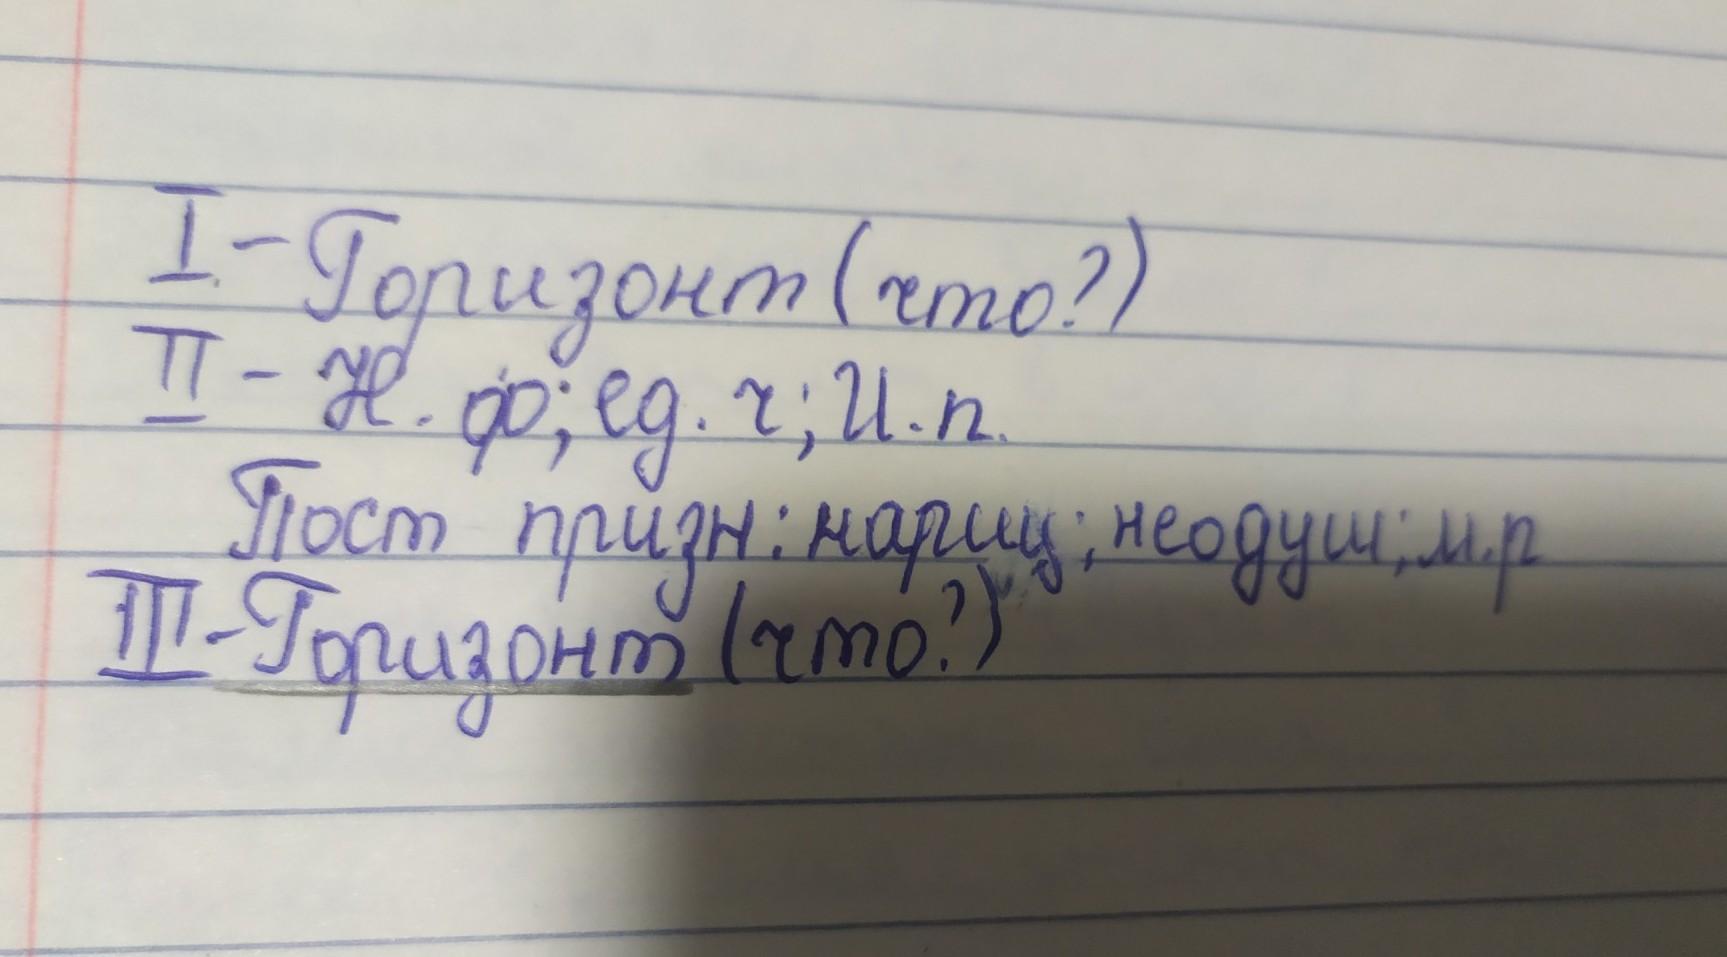 I - Горизонт (что?)
II - Н. ф; ед. ч; И. п.
Пост призн: нариц; неодуш; м.р
III - Горизонт (что?)